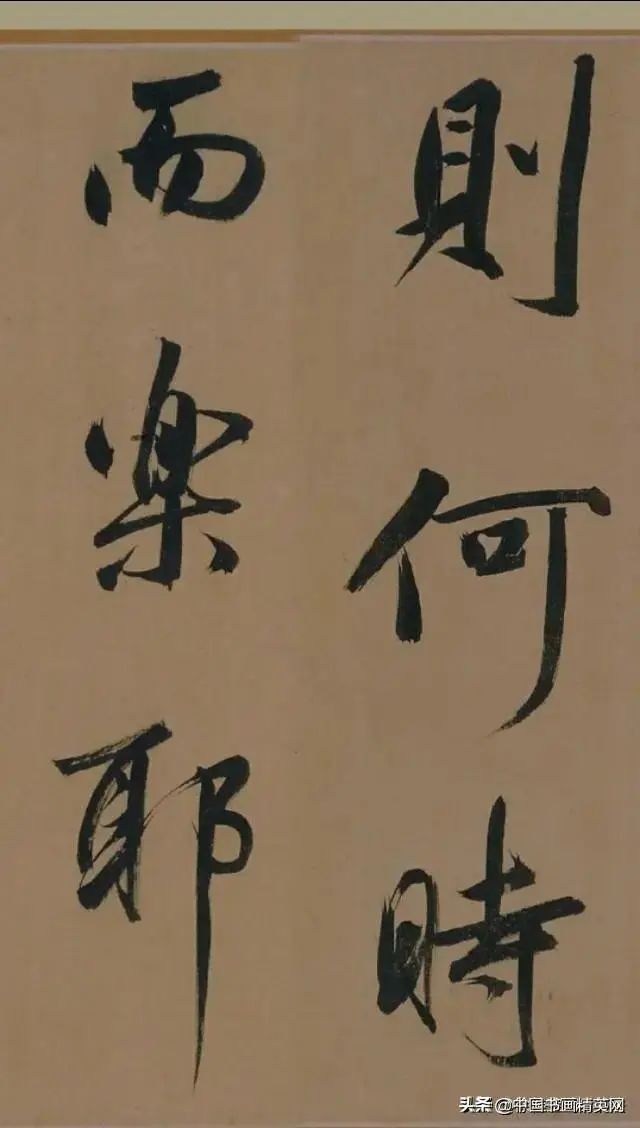 則何時
而楽耶
头条 @中国书画精英网